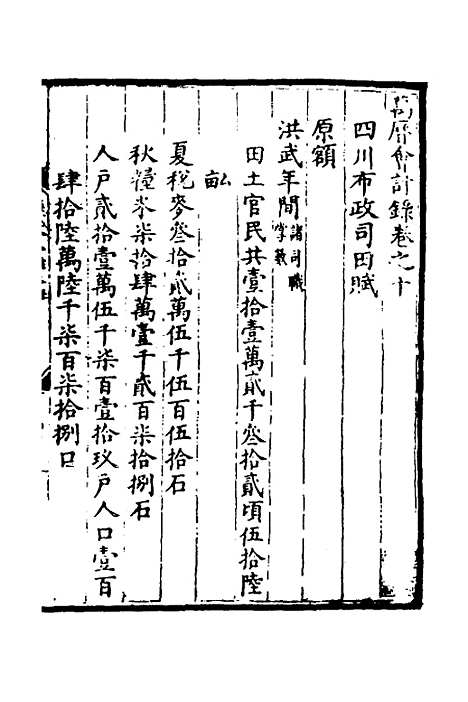 萬曆會計錄卷之十
四川布政司田賦
原額
洪武年間諸司職掌載
田土官民共壹拾壹萬貳千叁拾貳頃伍拾陸
畝
夏稅麥叁拾貳萬伍千伍百伍拾石
秋糧米柒拾肆萬壹千貳百柒拾捌石
人戶貳拾壹萬伍千柒百壹拾玖戶人口壹百
肆拾陸萬陸千柒百柒拾捌口